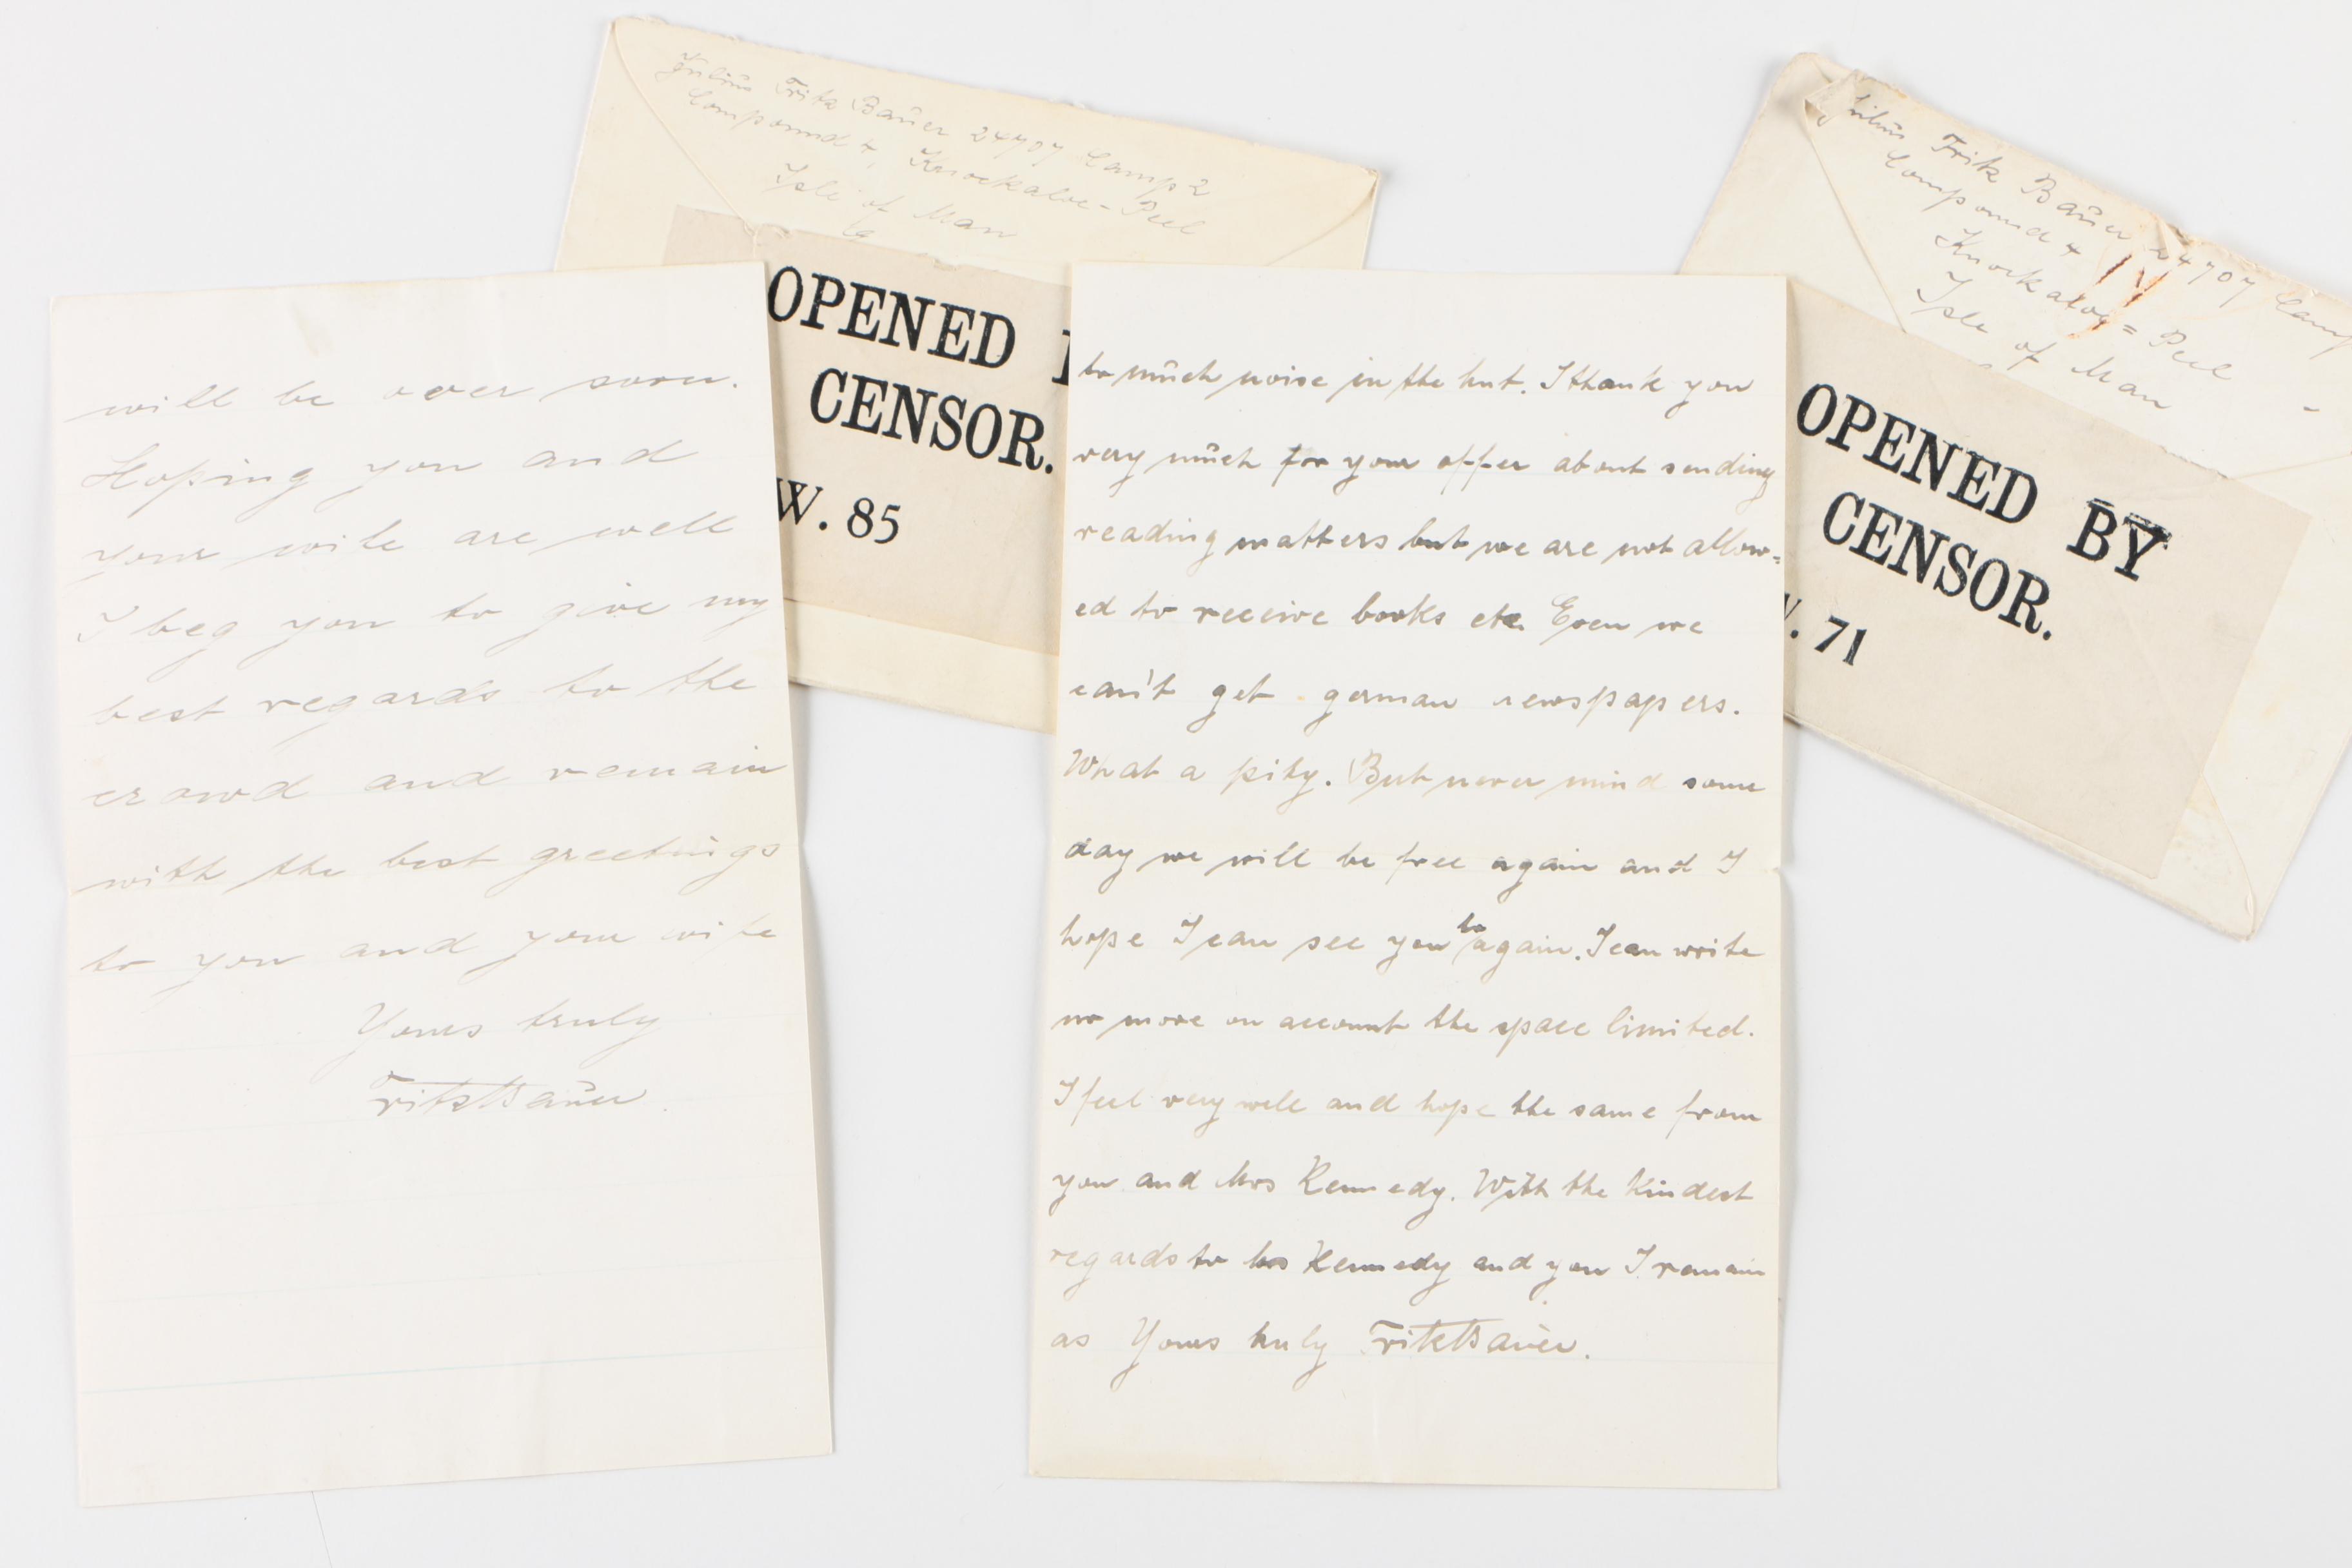 Julius Fritz Bauer 24707 Camp 2
Compound 4, Knockaloe-Peel
Isle of Man
OPENED
CENSOR.
W. 85
Julius Fritz Baüer 24707 Camp
Compound 4
Knockaloe= Peel
Isle of Man
OPENED BY
CENSOR.
W. 71
will be over soon.
Hoping you and
your wife are well
I beg you to give my
best regards to the
crowd and remain
with the best greetings
to you and your wife
Yours truly
Fritz Baüer.
to müch noise in the hut. I thank you
very müch for your offer about sending
reading matters but we are not allow=
ed to receive books etc. Even we
can't get german newspapers.
What a pity. But never mind some
day we will be free again and I
hope I can see you to again. I can write
no more on account the space limited.
I feel very well and hope the same from
you and Mrs Kennedy. With the kindest
regards to Mrs Kennedy and you I remain
as Yours truly Fritz Baüer.